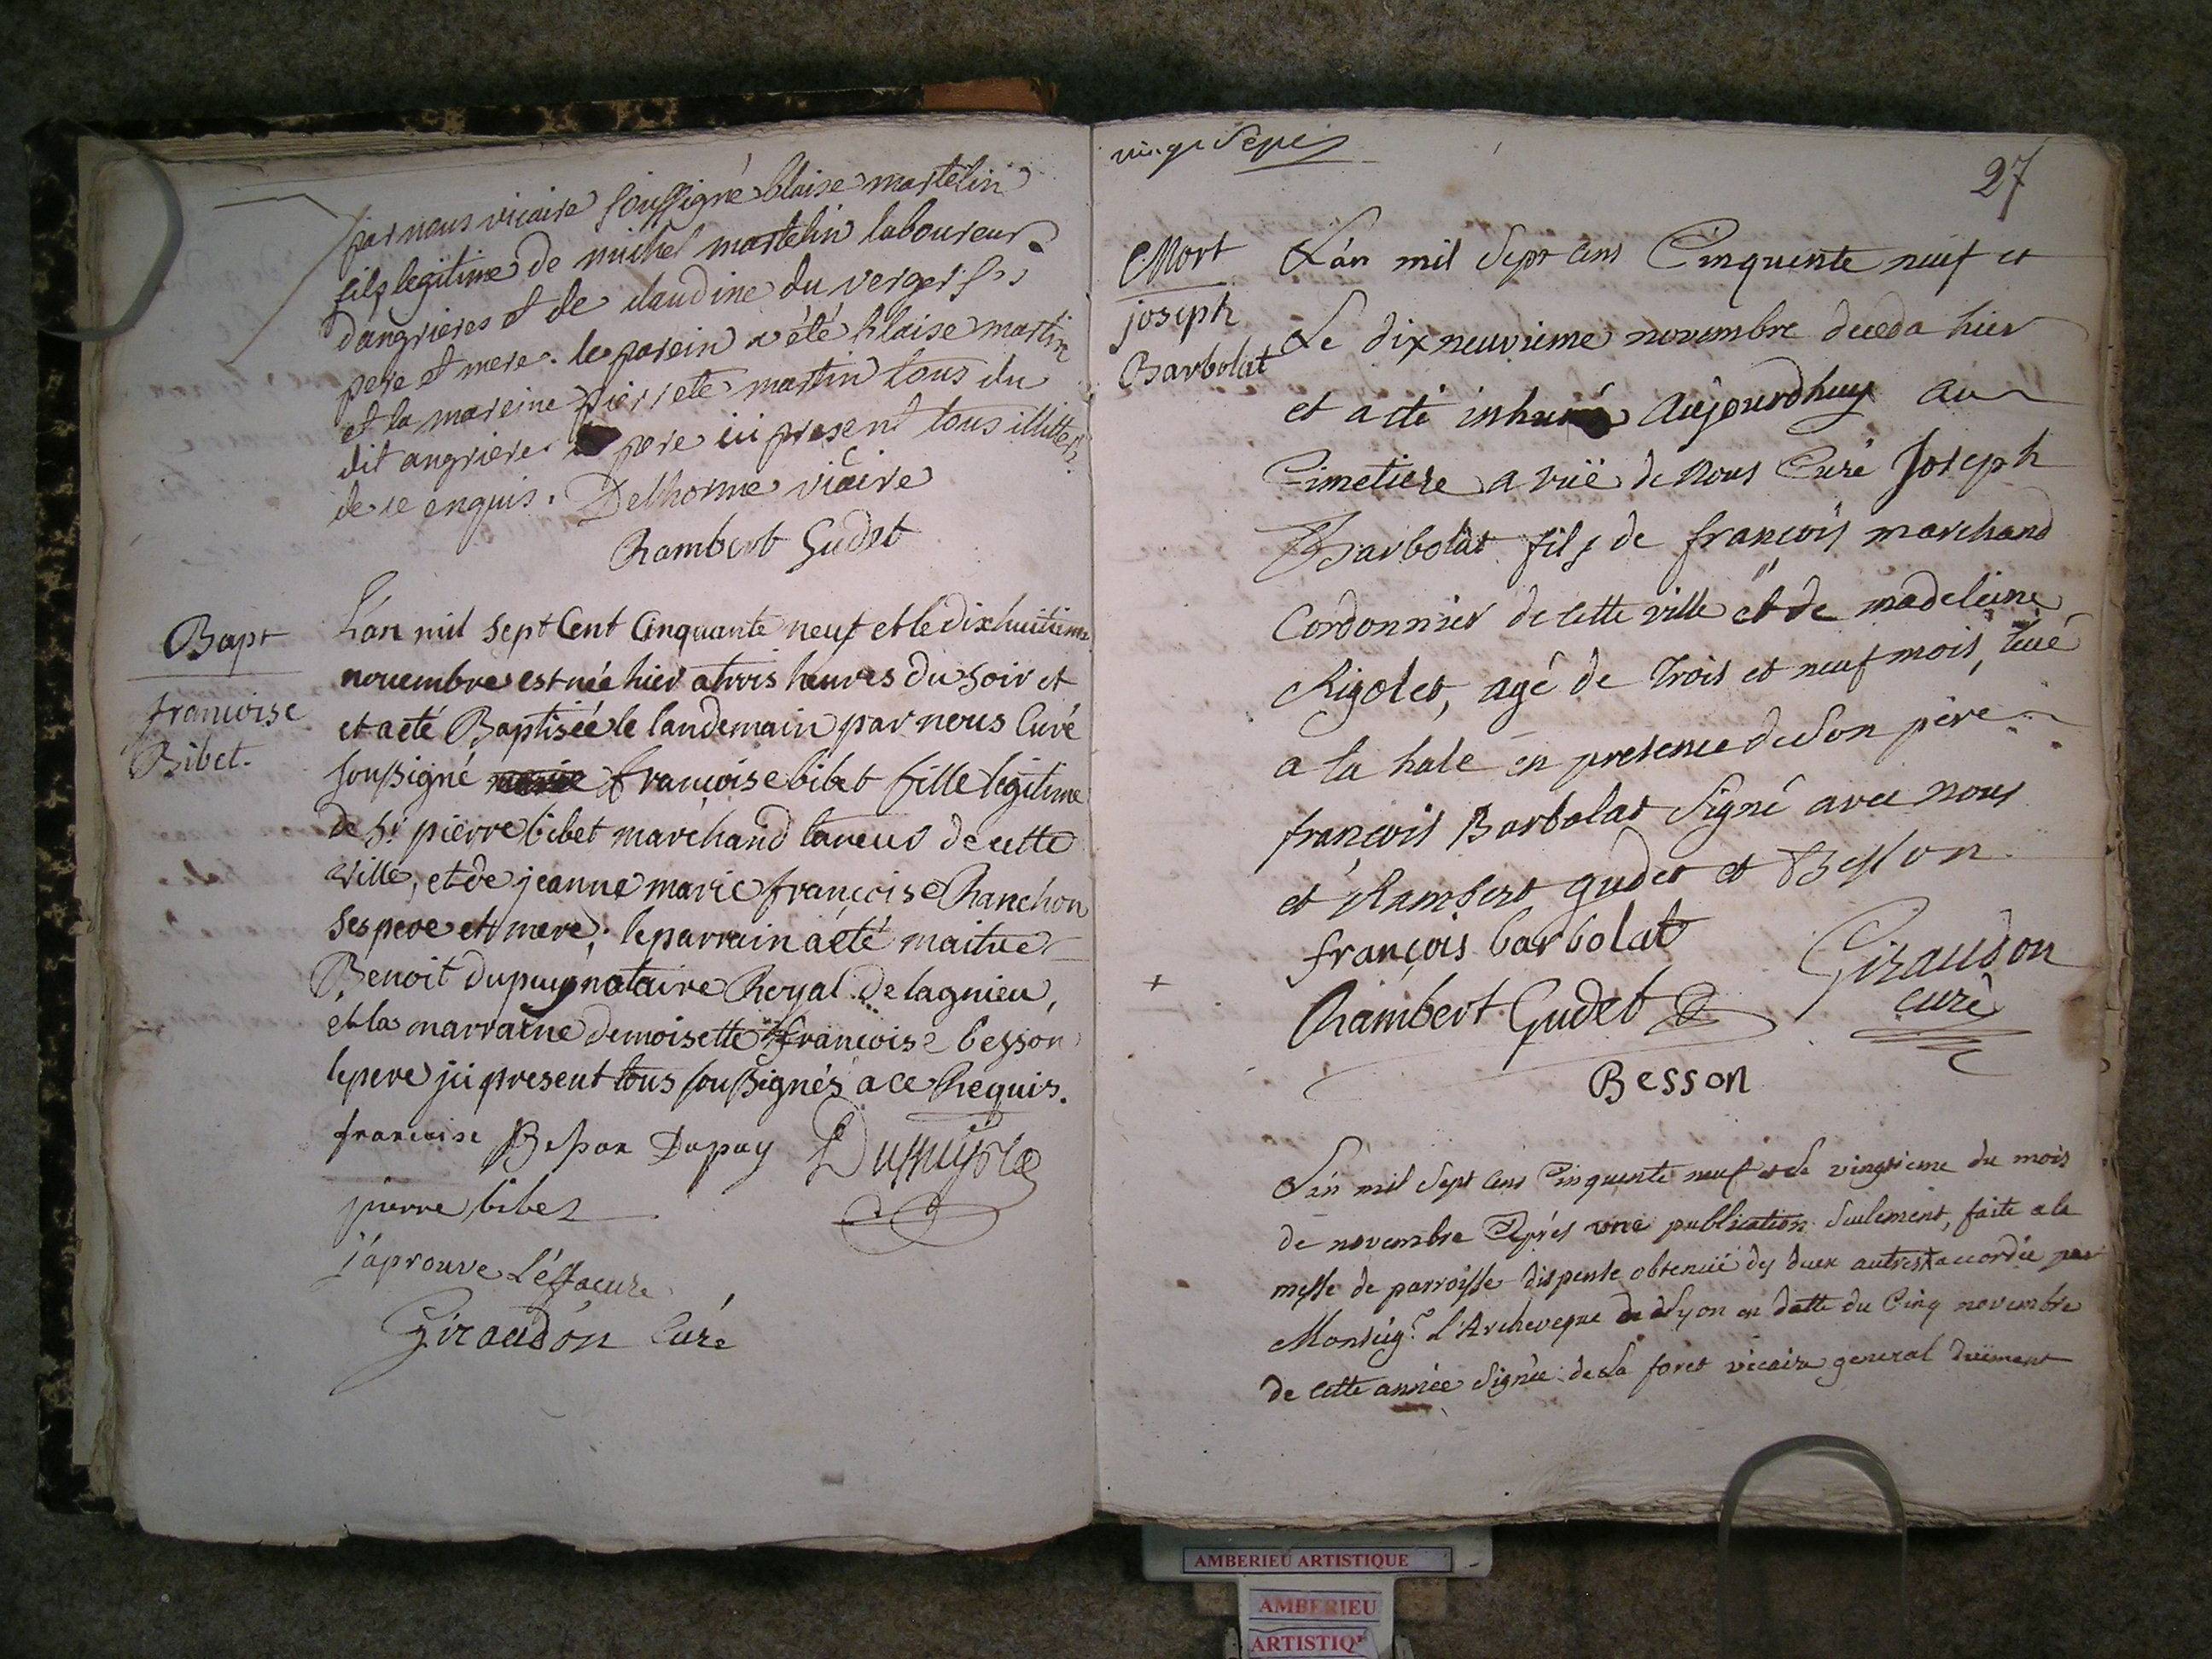 par nous vicaire soussigné blaise martelin
fils legitime de michel martelin laboureur
dangrieres et de claudine du verger ses
pere et mere. le parein a été blaise martin
et la mareine pierrete martin tous du
dit angriere. pere ici present tous illitterés
de ce enquis. Delhorme vicaire
Rambert Gudet
Bapt
francoise
Bibet.
L'an mil sept Cent Cinquante neuf et le dix huitieme
nouembre est née hier a trois heures du soir et
et a eté Baptisée le landemain par nous Curé
soussigné marie françoise bibet fille legitime
de Sr. pierre bibet marchand taneur de cette
ville, et de jeanne marie françoise Ranchon
ses pere et mere; le parrain a eté maitre
Benoit dupuy notaire Royal de lagnieu,
et la marraine demoiselle francoise besson
le pere jci present tous soussignés a ce Requis.
francoise Besson Dupuy Dupuy
pierre bibet
j'aprouve l'éffacure
Giraudon Curé
vingt Sept
27
Mort
joseph
Barbolat
L'an mil Sept cens Cinquente neuf et
Le dix neuvieme novembre deceda hier
et a eté inhumé aujourdhuy au
Cimetiere a vuë de Nous Curé Joseph
Barbolat fils de françois marchand
Cordonnier de cette ville et de madeleine
Rigolet, agé de Trois et neuf mois, tué
a la hale en presence de Son père
françois Barbolat Signé avec nous
et Rambert gudet et Besson.
françois barbolat
Giraudon
curé
+
Rambert Gudet
Besson
L'an mil Sept cens Cinquente neuf et Le vingtieme du mois
de novembre Après une publication Seulement, faite a la
messe de parroisse dispense obtenüe des deux autres accordée par
Monseigr. L'Archeveque de Lyon en datte du Cinq novembre
de cette année Signée de La foret vicaire general duëment
AMBERIEU ARTISTIQUE
AMBERIEU
ARTISTIQ